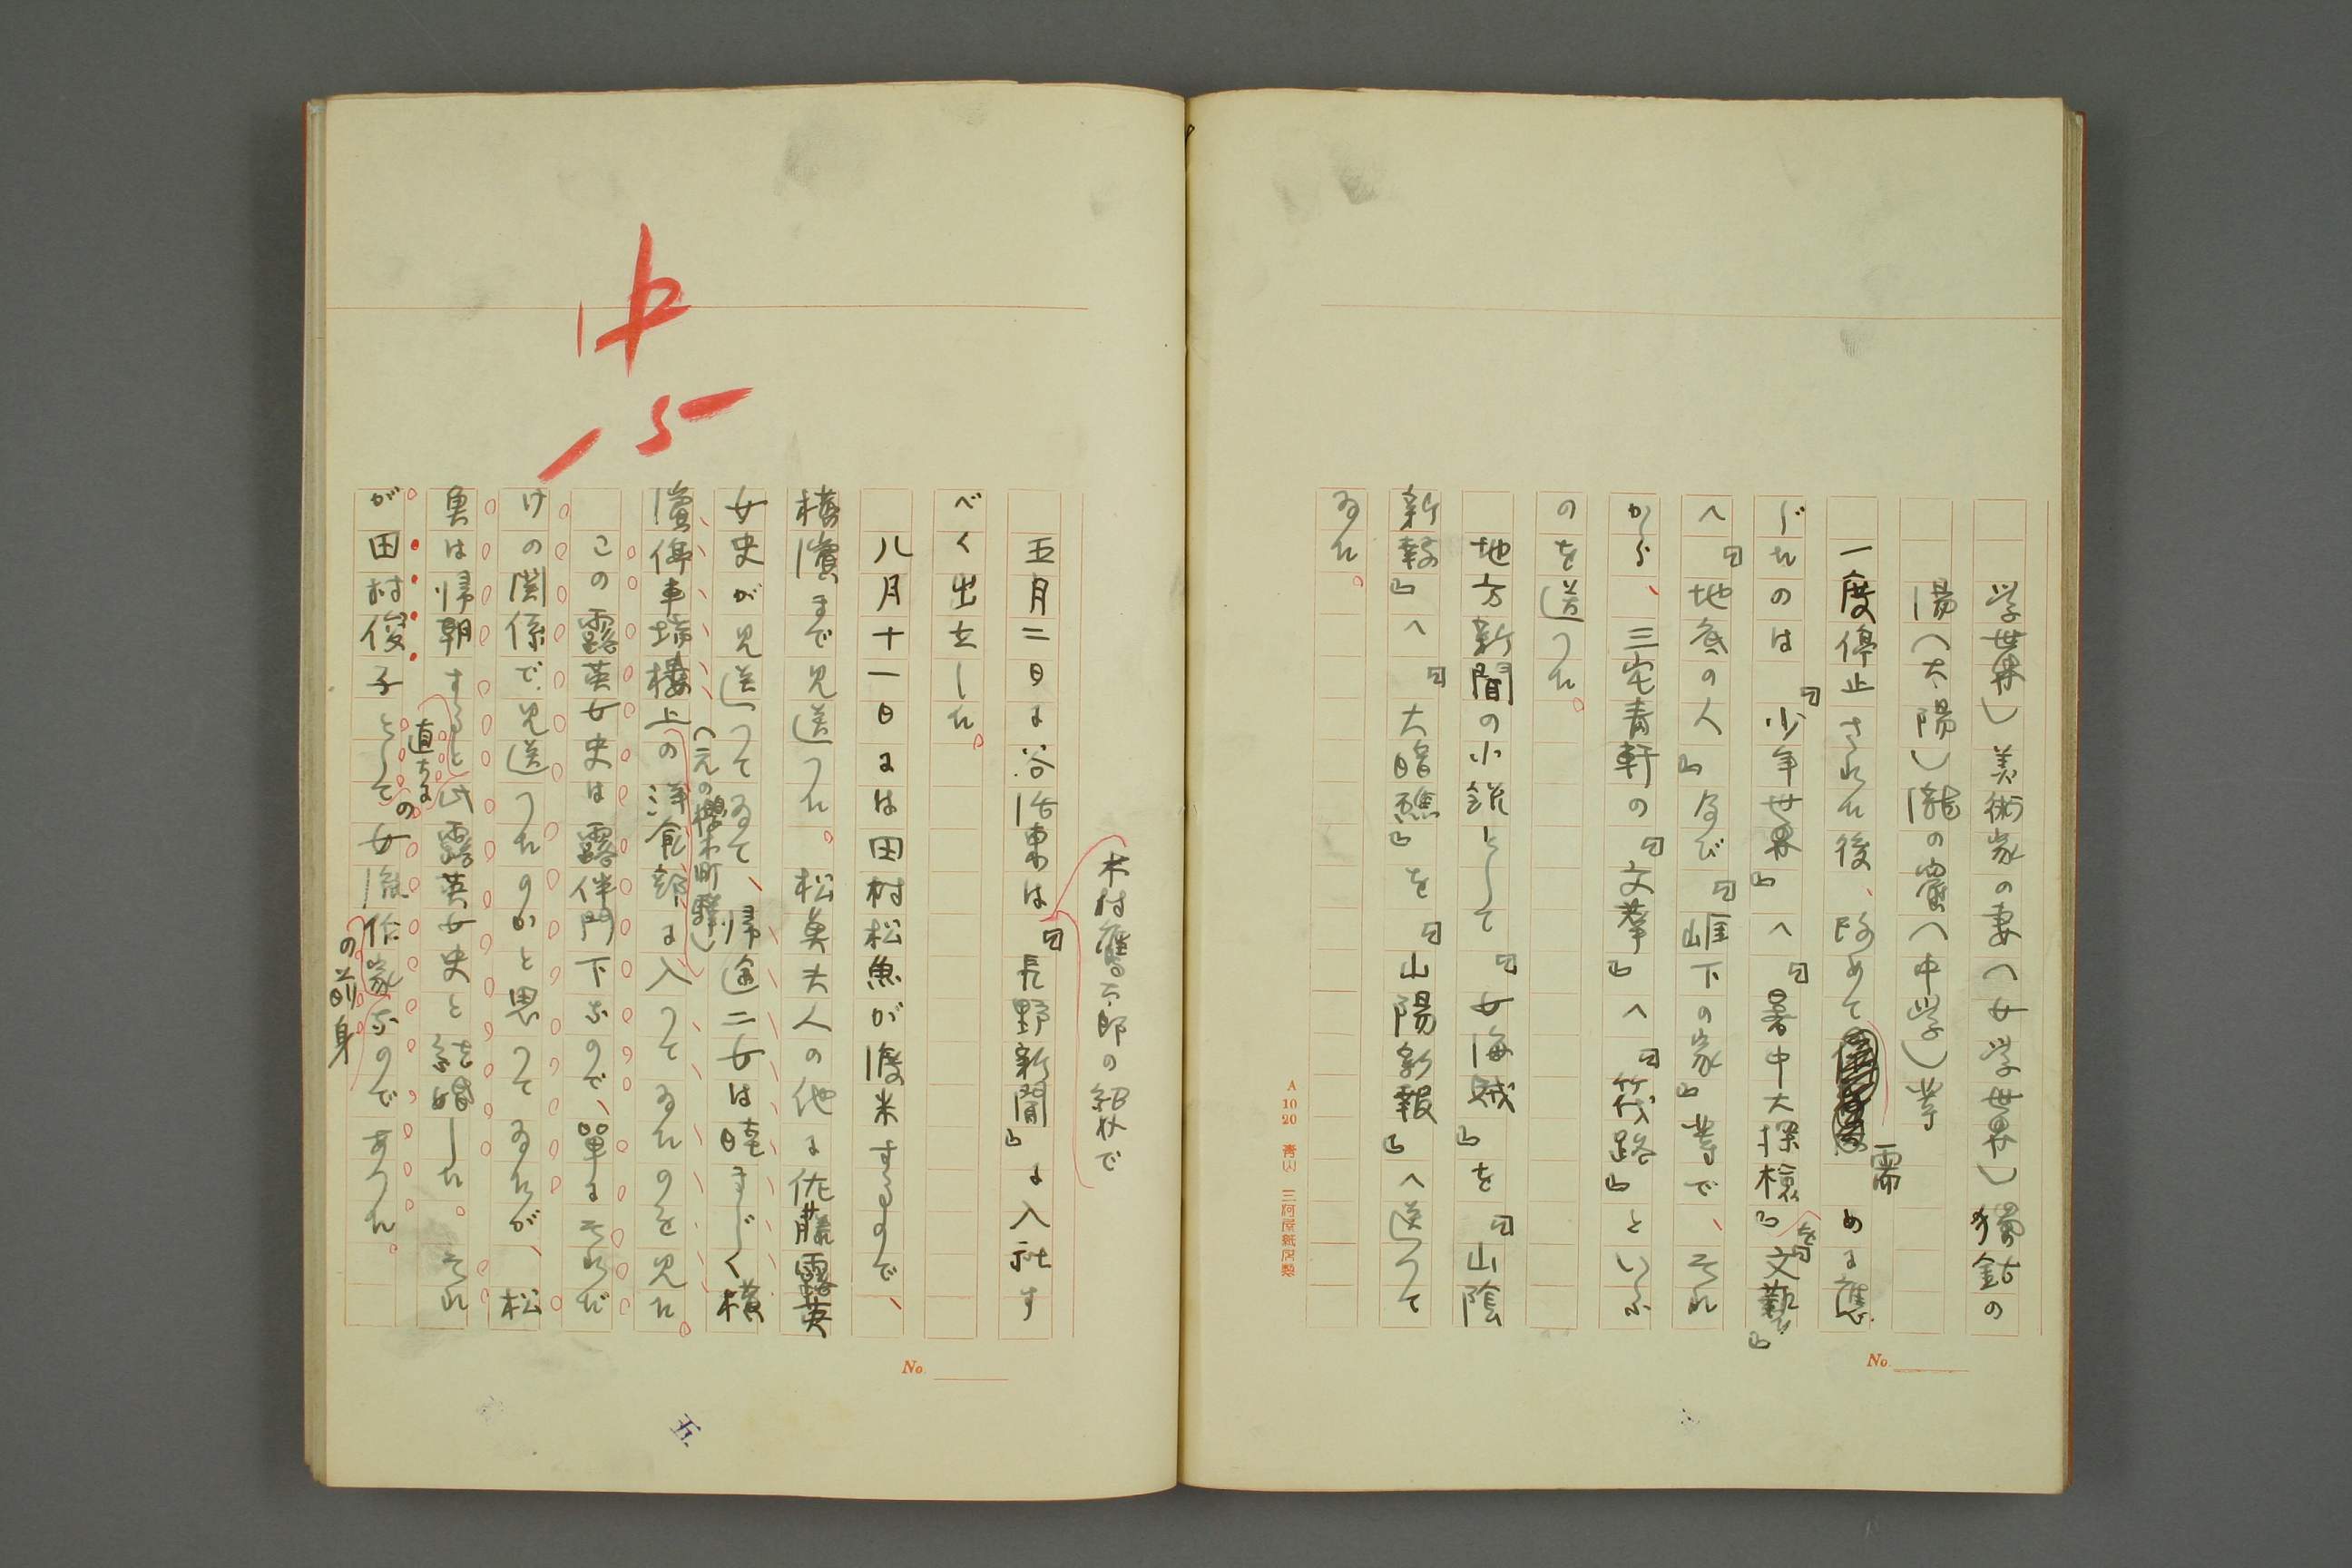 学世界)美術家の妻(女学世界)獨鈷の
湯(太陽)瀧の窟(中学)等
一度停止された後、改めて需めに應
じたのは『少年世界』へ『暑中大探檢』を『文藝』
へ『地底の人』及び『崖下の家』等で、それ
から、三宅青軒の『文擧』へ『筏路』といふ
のを送つた。
地方新聞の小説として『女海賊』を『山陰
新報』へ『大暗礁』を『山陽新報』へ送つて
ゐた。
A 10 20 青山 三河屋紙店製
No.
木村鷹太郎の紹状で
五月二日に谷活東は『長野新聞』に入社す
べく出立した。
八月十一日には田村松魚が渡米するので、
横濱まで見送つた。松魚夫人の他に佐藤露英
女史が見送つてゐて、帰途二女は睦まじく横
濱停車場樓上の洋食部に入つてゐたのを見た。
(元の櫻木町驛)
この露英女史は露伴門下なので、單にそれだ
けの関係で見送つたのかと思つてゐたが、松
魚は帰朝すると此露英女史と結婚した。それ
直ちに
が田村俊子としての女流作家なのであつた。
の前身
No.
中
五